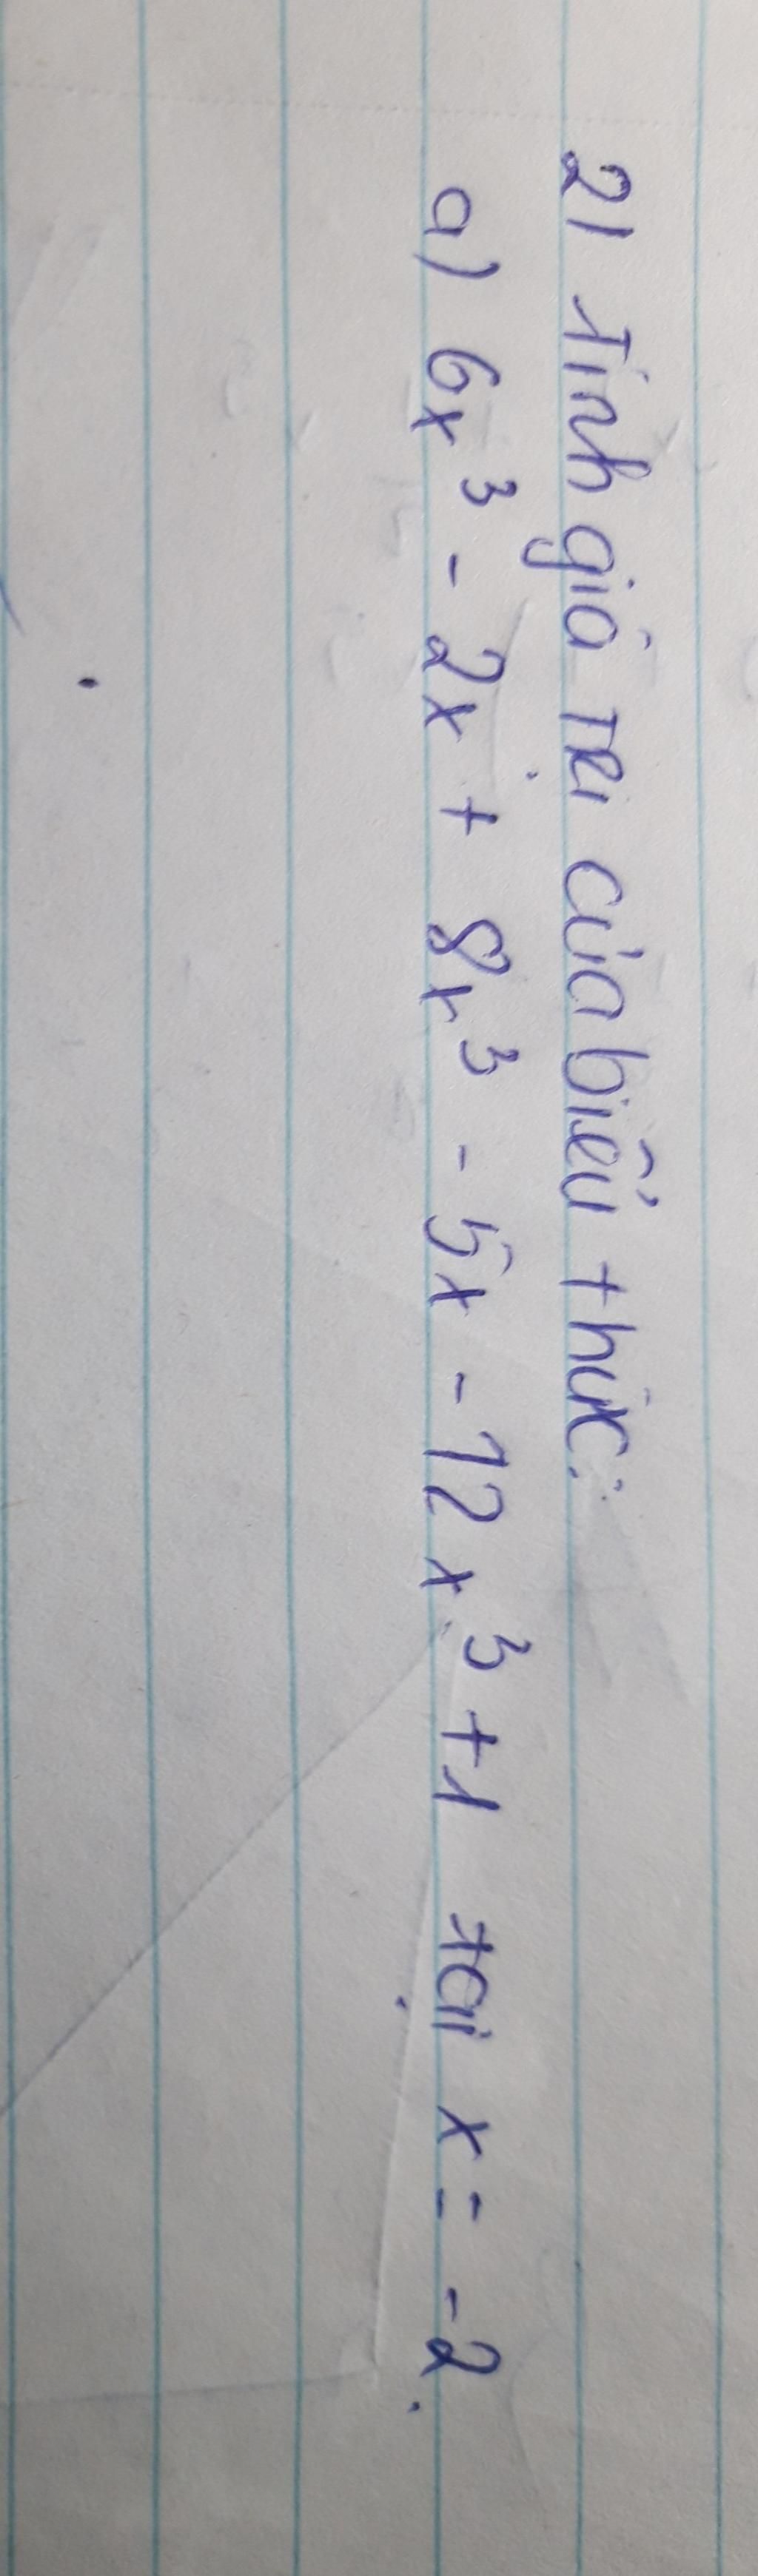 2/ Tính giá trị của biểu thức:
a) 6x³ - 2x + 8x³ - 5x - 12x³ + 1 tại x = -2.